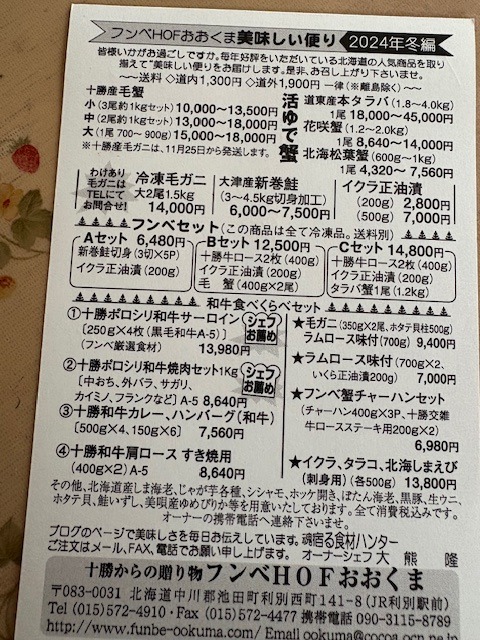 フンベHOFおおくま美味しい便り 2024年冬編
皆様いかがお過ごしですか。毎年好評をいただいている北海道の人気商品を取り
揃えて“美味しい便り”をお届けします。是非、お召し上がり下さいませ。
～送料 ◇道内1,300円 ◇道外1,900円 一律(※離島除く)～
十勝産毛蟹
小(3尾約1kgセット)10,000～13,500円
中(2尾約1kgセット)13,000～18,000円
大(1尾 700～900g)15,000～18,000円
※十勝産毛ガニは、11月25日から発送します。
活ゆで蟹
道東産本タラバ(1.8～4.0kg)
1尾 18,000～45,000円
花咲蟹(1.2～2.0kg)
1尾 8,640～14,000円
北海松葉蟹(600g～1kg)
1尾 4,320～ 7,560円
わけあり
毛ガニは
TELにて
お問合せ!
冷凍毛ガニ
大2尾1.5kg
14,000円
大津産新巻鮭
(3～4.5kg切身加工)
6,000～7,500円
イクラ正油漬
(200g) 2,800円
(500g) 7,000円
フンベセット(この商品は全て冷凍品。送料別)
Aセット 6,480円
新巻鮭切身(3切×5P)
イクラ正油漬(200g)
Bセット 12,500円
十勝牛ロース2枚(400g)
イクラ正油漬(200g)
毛 蟹(400g×2尾)
Cセット 14,800円
十勝牛ロース2枚(400g)
イクラ正油漬(200g)
タラバ蟹1尾(1.2kg)
和牛食べくらべセット
①十勝ポロシリ和牛サーロイン
[250g×4枚(黒毛和牛A-5)]
(フンベ厳選食材) 13,980円
シェフお薦め
②十勝ポロシリ和牛焼肉セット1Kg
[中おち、外バラ、サガリ、
カイミノ、フランクなど]A-5 8,640円
シェフお薦め
③十勝和牛カレー、ハンバーグ(和牛)
[500g×4、150g×6] 7,560円
④十勝和牛肩ロース すき焼用
(400g×2)A-5 8,640円
★毛ガニ(350g×2尾、ホタテ貝柱500g)
ラムロース味付(700g) 9,400円
★ラムロース味付(700g×2、
いくら正油漬200g) 7,000円
★フンベ蟹チャーハンセット
(チャーハン400g×3P、十勝交雑
牛ロースステーキ用200g×2)
6,980円
★イクラ、タラコ、北海しまえび
(刺身用)(各500g) 13,800円
その他、北海道産しま海老、じゃが芋各種、シシャモ、ホッケ開き、ぼたん海老、黒豚、生ウニ、
ホタテ貝、鮭いずし、美唄産ゆめぴりか等を用意いたしております。全て消費税込みです。
オーナーの携帯電話へ連絡下さいませ。
ブログのページで美味しさを毎日お伝えしています。魂宿る食材ハンター
ご注文はメール、FAX、電話でお願い申し上げます。 オーナーシェフ 大 熊 隆
十勝からの贈り物フンベHOFおおくま
〒083-0031 北海道中川郡池田町利別西町141-8(JR利別駅前)
Tel(015)572-4910・Fax(015)572-4477 携帯電話 090-3115-8789
http://www.funbe-ookuma.com/ Email ookuma@cocoa.ocn.ne.jp